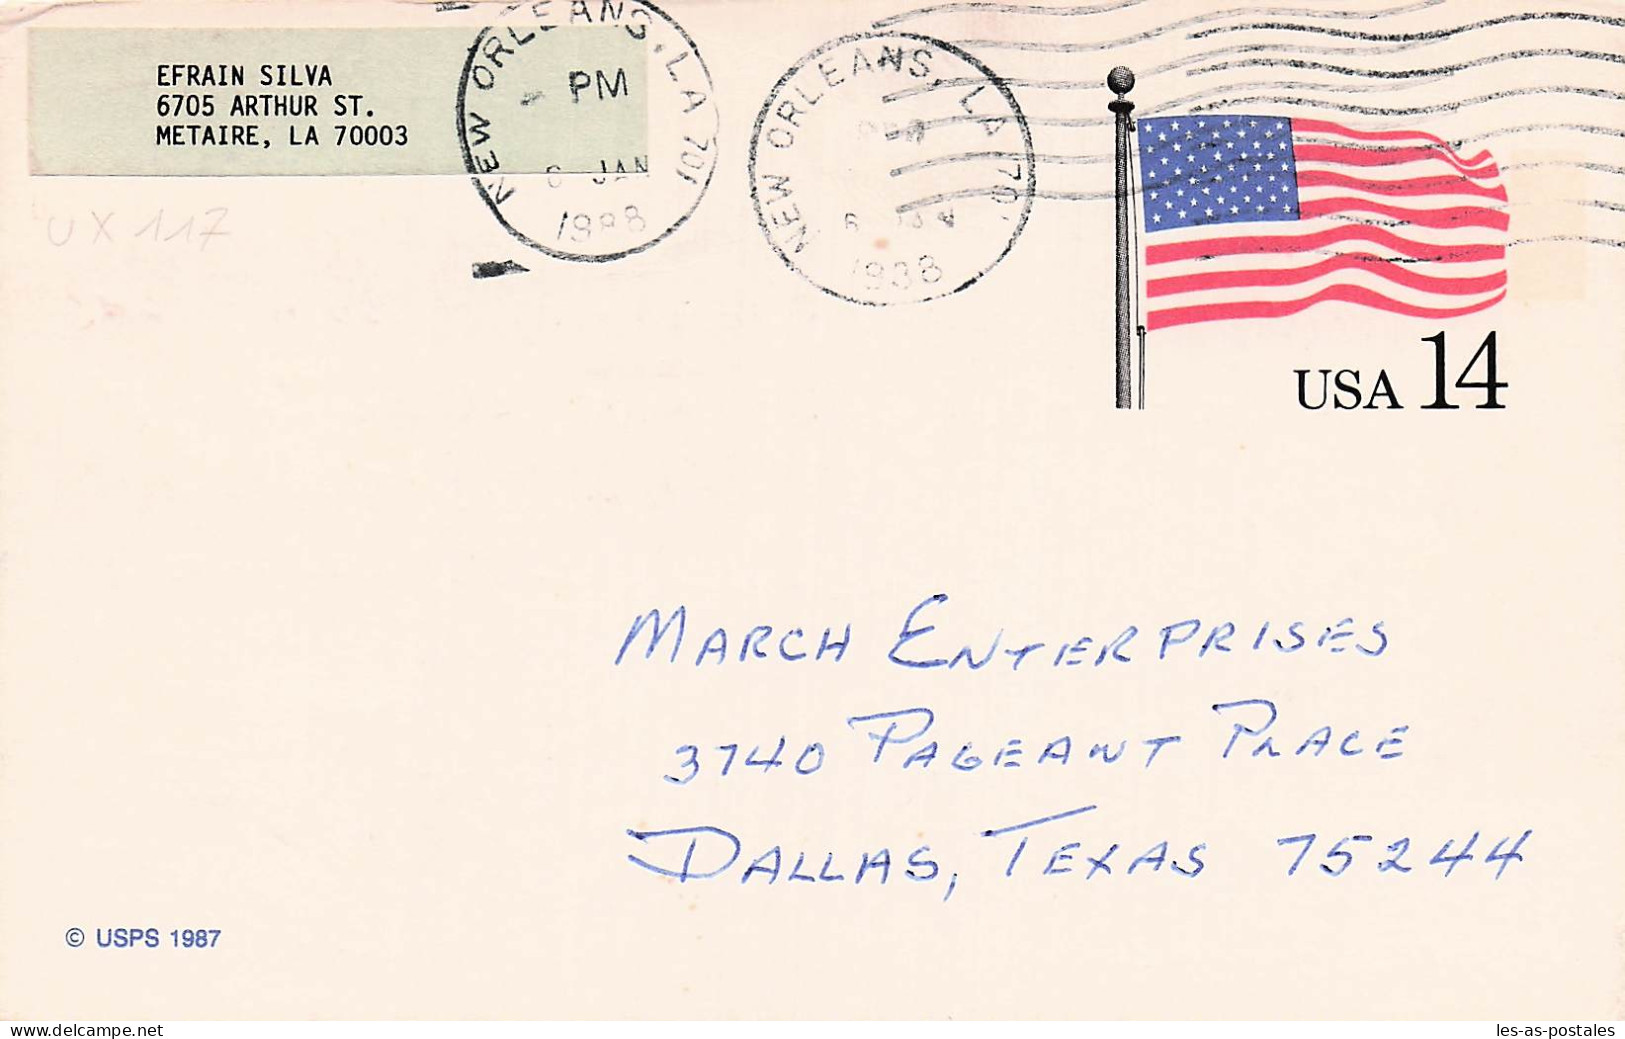 EFRAIN SILVA
6705 ARTHUR ST.
METAIRE, LA 70003
NEW ORLEANS, LA 701
PM
6 JAN
1988
NEW ORLEANS, LA 70
1988
UX 117
USA 14
MARCH ENTERPRISES
3740 PAGEANT PLACE
DALLAS, TEXAS 75244
© USPS 1987
delcampe.net
les-as-postales